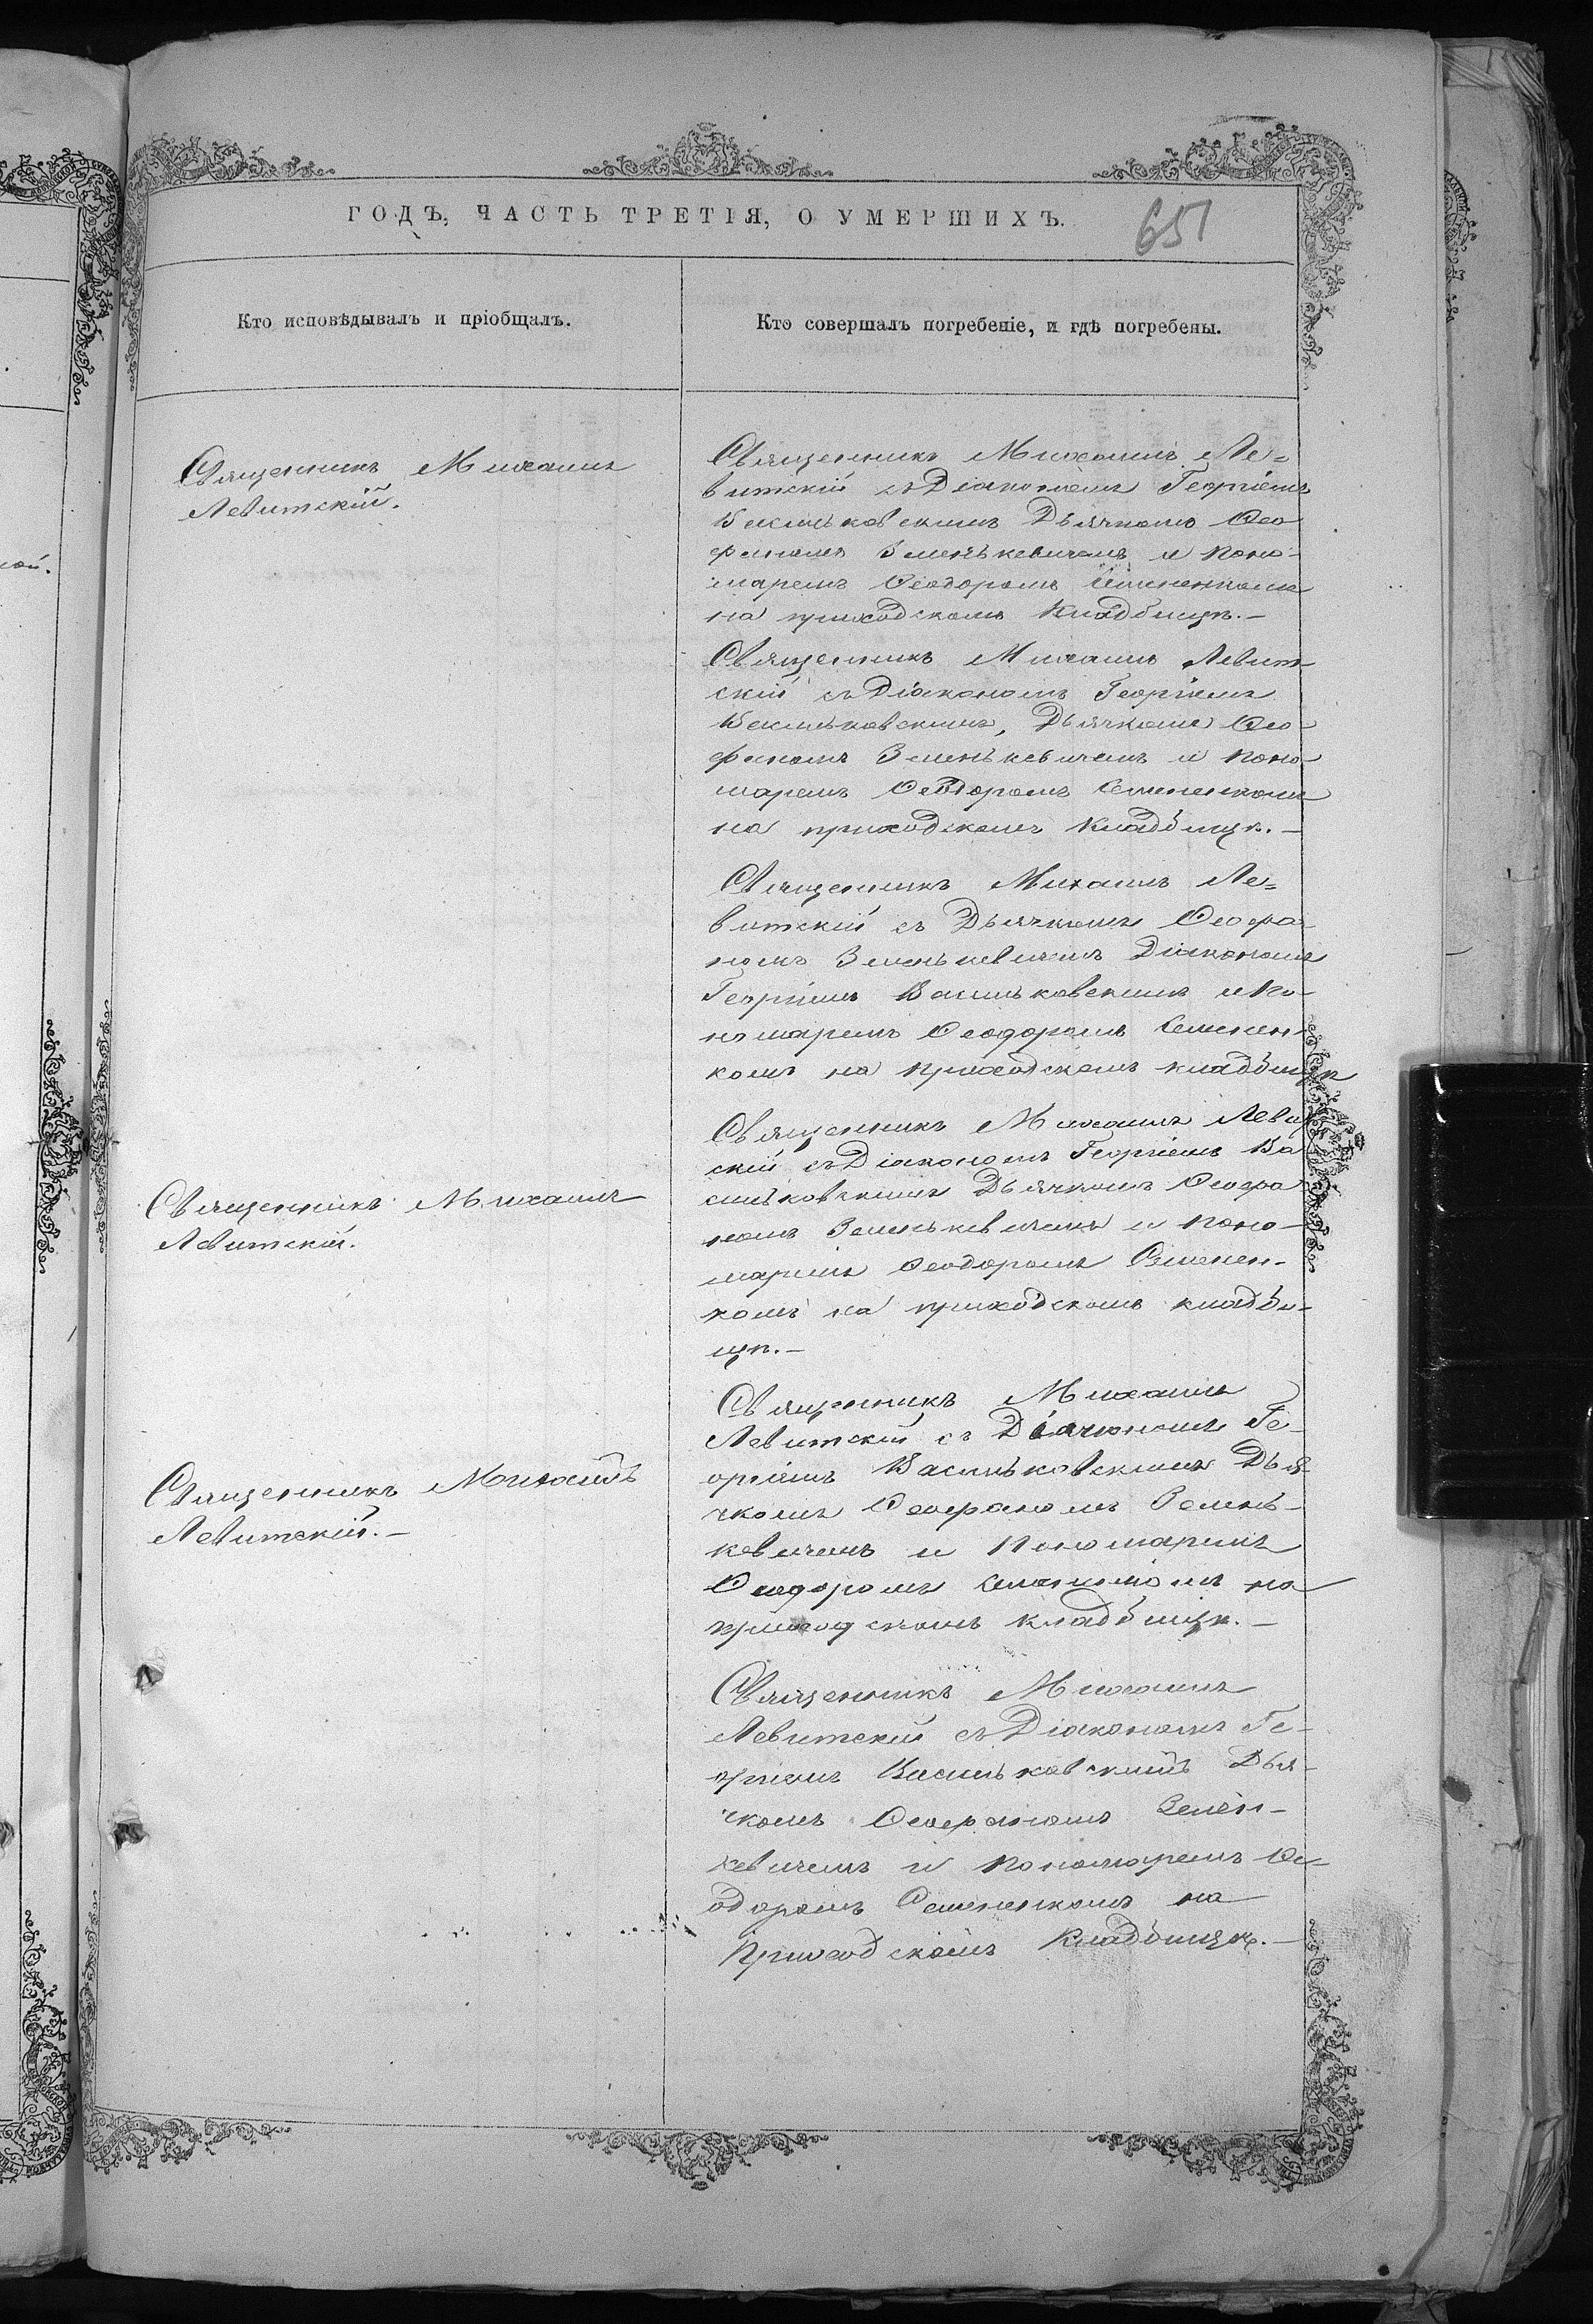 ГОДЪ, ЧАСТЬ ТРЕТІЯ, О УМЕРШИХЪ.
651
Кто исповѣдывалъ и пріобщалъ.
Кто совершалъ погребеніе, и гдѣ погребены.
Священникъ Михаилъ
Левитскій.
Священникъ Михаилъ Ле=
витскій съ Діакономъ Георгіемъ
Васильковскимъ Дьячкомъ Ѳео
фаномъ Зеленькевичемъ и поно-
маремъ Ѳеодоромъ Семененкомъ
на приходскомъ кладбищѣ.—
Священникъ Михаилъ Левит
скій съ Діакономъ Георгіемъ
Васильковскимъ, Дьячкомъ Ѳео-
фаномъ Зеленькевичемъ и поно
маремъ Ѳеодоромъ Семененкомъ
на приходскомъ кладбищѣ.—
Священникъ Михаилъ Ле=
витскій съ Дьячкомъ Ѳеофа-
номъ Зеленькевичемъ Діакономъ
Георгіемъ Васильковскимъ и по-
номаремъ Ѳеодоромъ Семенен-
комъ на приходскомъ кладбищѣ
Священникъ Михаилъ Левит
скій съ Діакономъ Георгіемъ Ва
сильковскимъ Дьячкомъ Ѳеофа
номъ Зеленькевичемъ и поно-
маремъ Ѳеодоромъ Семенен-
комъ на приходскомъ кладби-
щѣ.—
Священникъ Михаилъ
Левитскій.
Священникъ Михаилъ
Левитскій съ Діакономъ Ге-
оргіемъ Васильковскимъ Дья-
чкомъ Ѳеофаномъ Зелень-
кевичемъ и Пономаремъ
Ѳеодоромъ Семененкомъ на
приходскомъ кладбищѣ.—
Священникъ Михаилъ
Левитскій.—
Священникъ Михаилъ
Левитскій съ Діакономъ Ге-
оргіемъ Васильковскимъ Дья-
чкомъ Ѳеофаномъ Зелен-
кевичемъ и пономаремъ Ѳе-
одоромъ Семененкомъ на
приходскомъ кладбищѣ.—